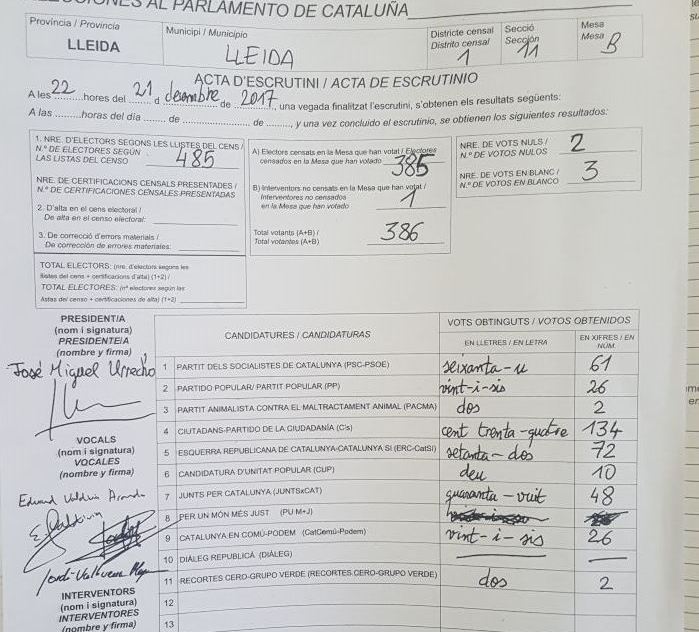 ECCIONES AL PARLAMENTO DE CATALUÑA
Província / Provincia
LLEIDA
Municipi / Municipio
LLEIDA
Districte censal
Distrito censal
1
Secció
Sección
11
Mesa
Mesa
B
ACTA D'ESCRUTINI / ACTA DE ESCRUTINIO
A les 22 hores del 21 d desembre de 2017, una vegada finalitzat l'escrutini, s'obtenen els resultats següents:
A las ........ horas del día ........ de ........ de ........, y una vez concluido el escrutinio, se obtienen los siguientes resultados:
1. NRE. D'ELECTORS SEGONS LES LLISTES DEL CENS /
N.º DE ELECTORES SEGÚN
LAS LISTAS DEL CENSO 485
NRE. DE CERTIFICACIONS CENSALS PRESENTADES /
N.º DE CERTIFICACIONES CENSALES PRESENTADAS
2. D'alta en el cens electoral /
De alta en el censo electoral:
3. De correcció d'errors materials /
De corrección de errores materiales:
TOTAL ELECTORS: (nre. d'electors segons les
llistes del cens + certificacions d'alta) (1+2) /
TOTAL ELECTORES: (nº electores según las
listas del censo + certificaciones de alta) (1+2)
A) Electors censats en la Mesa que han votat / Electores
censados en la Mesa que han votado 385
B) Interventors no censats en la Mesa que han votat /
Interventores no censados
en la Mesa que han votado 1
Total votants (A+B) /
Total votantes (A+B) 386
NRE. DE VOTS NULS /
N.º DE VOTOS NULOS 2
NRE. DE VOTS EN BLANC /
N.º DE VOTOS EN BLANCO 3
PRESIDENT/A
(nom i signatura)
PRESIDENTE/A
(nombre y firma)
José Miguel Urrecho
VOCALS
(nom i signatura)
VOCALES
(nombre y firma)
INTERVENTORS
(nom i signatura)
INTERVENTORES
(nombre y firma)
CANDIDATURES / CANDIDATURAS
VOTS OBTINGUTS / VOTOS OBTENIDOS
EN LLETRES / EN LETRA
EN XIFRES / EN NÚM.
1 PARTIT DELS SOCIALISTES DE CATALUNYA (PSC-PSOE) seixanta-u 61
2 PARTIDO POPULAR/ PARTIT POPULAR (PP) vint-i-sis 26
3 PARTIT ANIMALISTA CONTRA EL MALTRACTAMENT ANIMAL (PACMA) dos 2
4 CIUTADANS-PARTIDO DE LA CIUDADANÍA (C's) cent trenta-quatre 134
5 ESQUERRA REPUBLICANA DE CATALUNYA-CATALUNYA SÍ (ERC-CatSí) setanta-dos 72
6 CANDIDATURA D'UNITAT POPULAR (CUP) deu 10
7 JUNTS PER CATALUNYA (JUNTSxCAT) quaranta-vuit 48
8 PER UN MÓN MÉS JUST (PU M+J)
9 CATALUNYA EN COMÚ-PODEM (CatComú-Podem) vint-i-sis 26
10 DIÀLEG REPUBLICÀ (DIÀLEG)
11 RECORTES CERO-GRUPO VERDE (RECORTES CERO-GRUPO VERDE) dos 2
12
13